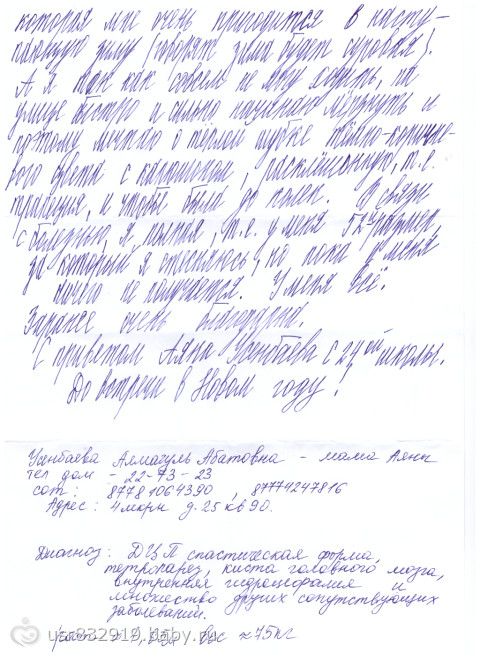 которая мне очень пригодится в насту-
пающую зиму (говорят зима будет суровая).
А я так как совсем не могу ходить, на
улице быстро и сильно начинаю мёрзнуть и
поэтому мечтаю о тёплой шубке тёмно-коричне-
вого цвета с капюшоном, расклешённую, т.е.
трапеция, и чтобы была до колен. В связи
с болезнью, я полная, т.е. у меня 52ой размер,
за который я стесняюсь, но пока у меня
ничего не получается. У меня всё.
Заранее очень благодарна.
С приветом Аяна Усенбаева с 24ой школы.
До встречи в Новом году!
Усенбаева Алмагуль Абатовна - мама Аяны
тел дом - 22-73-23
сот: 87781064390, 87774247816
Адрес: 4 мкрн д.25 кв 90.
Диагноз: ДЦП спастическая форма,
тетрапарез, киста головного мозга,
внутренняя гидроцефалия и
множество других сопутствующих
заболеваний.
рост вес ≈ 75кг